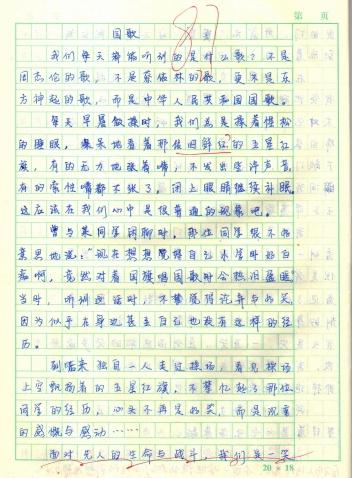 第 页
87
国歌
我们每天都能听到的是什么歌？不是
周杰伦的歌，不是蔡依林的歌，更不是东
方神起的歌，而是中华人民共和国国歌。
每天早晨做操时，我们总是揉着惺忪
的睡眼，看着那依旧鲜红的五星红
旗，有的无力地张着嘴，不发出些许声音，
有的索性嘴都不张了，闭上眼睛继续补眠。
这应该在我们心中是很普通的现象吧。
曾与某同学闲聊时，那位同学很不好
意思地说：“现在想想觉得自己小学时好白
痴啊，竟然对着国旗唱国歌时会热泪盈眶
当时，听到这话时，不禁觉得诧异与好笑，
因为似乎在身边甚至自己也没有这样的经
历。
到后来独自一人走过操场，看见操场
上空飘扬着的五星红旗，不禁忆起了那位
同学的经历，心头不再是好笑，而是沉重
的感慨与感动……
面对先人的生命与战斗，我们是一笑
20 × 18